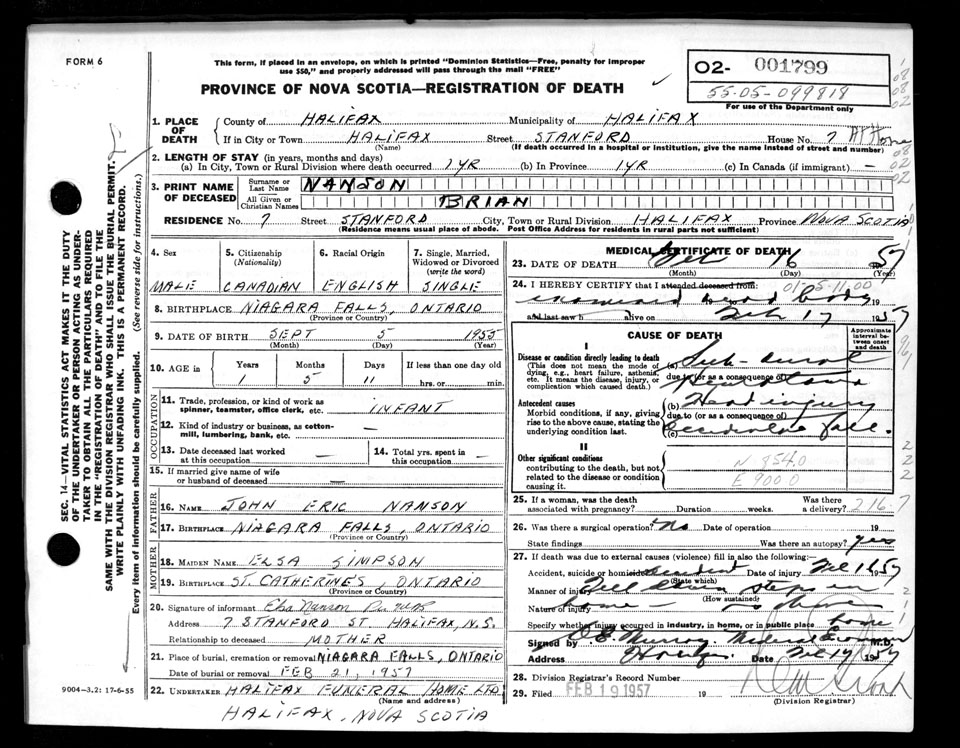 FORM 6
This form, if placed in an envelope, on which is printed "Dominion Statistics—Free, penalty for improper
use $50," and properly addressed will pass through the mail "FREE"
PROVINCE OF NOVA SCOTIA—REGISTRATION OF DEATH
02- 001799
55-05-099818
For use of the Department only
1. PLACE OF DEATH
County of HALIFAX Municipality of HALIFAX
If in City or Town HALIFAX Street STANFORD House No. 7 At Home
(Name) (If death occurred in a hospital or institution, give the name instead of street and number)
2. LENGTH OF STAY (in years, months and days)
(a) In City, Town or Rural Division where death occurred 1 YR (b) In Province 1 YR (c) In Canada (if immigrant) —
3. PRINT NAME OF DECEASED
Surname or Last Name NANSON
All Given or Christian Names BRIAN
RESIDENCE No. 7 Street STANFORD City, Town or Rural Division HALIFAX Province NOVA SCOTIA
(Residence means usual place of abode. Post Office Address for residents in rural parts not sufficient)
4. Sex
MALE
5. Citizenship
(Nationality)
CANADIAN
6. Racial Origin
ENGLISH
7. Single, Married,
Widowed or Divorced
(write the word)
SINGLE
8. BIRTHPLACE NIAGARA FALLS, ONTARIO
(Province or Country)
9. DATE OF BIRTH SEPT 5 1955
(Month) (Day) (Year)
10. AGE in
Years Months Days If less than one day old
1 5 11 hrs. or min.
OCCUPATION
11. Trade, profession, or kind of work as
spinner, teamster, office clerk, etc. INFANT
12. Kind of industry or business, as cotton-
mill, lumbering, bank, etc. —
13. Date deceased last worked
at this occupation —
14. Total yrs. spent in
this occupation —
15. If married give name of wife
or husband of deceased
FATHER
16. NAME JOHN ERIC NANSON
17. BIRTHPLACE NIAGARA FALLS, ONTARIO
(Province or Country)
MOTHER
18. MAIDEN NAME ELSA SIMPSON
19. BIRTHPLACE ST. CATHERINES, ONTARIO
(Province or Country)
20. Signature of informant Elsa Nanson
Address 7 STANFORD ST. HALIFAX, N.S.
Relationship to deceased MOTHER
21. Place of burial, cremation or removal NIAGARA FALLS, ONTARIO
Date of burial or removal FEB 21, 1957
22. UNDERTAKER HALIFAX FUNERAL HOME LTD
(Name and address)
HALIFAX, NOVA SCOTIA
9004-3.2: 17-6-55
MEDICAL CERTIFICATE OF DEATH
23. DATE OF DEATH Feb 16 1957
(Month) (Day) (Year)
24. I HEREBY CERTIFY that I attended deceased from:
01-05-11.00
examined dead body 19
and last saw h alive on Feb 17 1957
CAUSE OF DEATH
Approximate
interval be-
tween onset
and death
I
Disease or condition directly leading to death
(This does not mean the mode of
dying, e.g., heart failure, asthenia,
etc. It means the disease, injury, or
complication which caused death.)
(a) Sub-dural
due to (or as a consequence of)
Antecedent causes
Morbid conditions, if any, giving
rise to the above cause, stating the
underlying condition last.
(b) Head injury
due to (or as a consequence of)
(c) accidental fall.
II
Other significant conditions
contributing to the death, but not
related to the disease or condition
causing it.
N 854.0
E 900.0
25. If a woman, was the death
associated with pregnancy? Duration weeks. Was there
a delivery?
26. Was there a surgical operation? No Date of operation 19
State findings Was there an autopsy? yes
27. If death was due to external causes (violence) fill in also the following:—
Accident, suicide or homicide accident Date of injury Feb 16 1957
(State which)
Manner of injury Fell down steps in
home (How sustained)
Nature of injury as above
Specify whether injury occurred in industry, in home, or in public place home
Signed by Murray Medical Examiner M.D.
Address Halifax Date Feb 19 1957
28. Division Registrar's Record Number
29. Filed FEB 19 1957 19
(Division Registrar)
SEC. 14—VITAL STATISTICS ACT MAKES IT THE DUTY
OF THE UNDERTAKER OR PERSON ACTING AS UNDER-
TAKER TO OBTAIN ALL THE PARTICULARS REQUIRED
IN THE "REGISTRATION OF DEATH" AND TO FILE THE
SAME WITH THE DIVISION REGISTRAR WHO SHALL ISSUE THE BURIAL PERMIT.
WRITE PLAINLY WITH UNFADING INK. THIS IS A PERMANENT RECORD.
Every item of information should be carefully supplied. (See reverse side for instructions.)